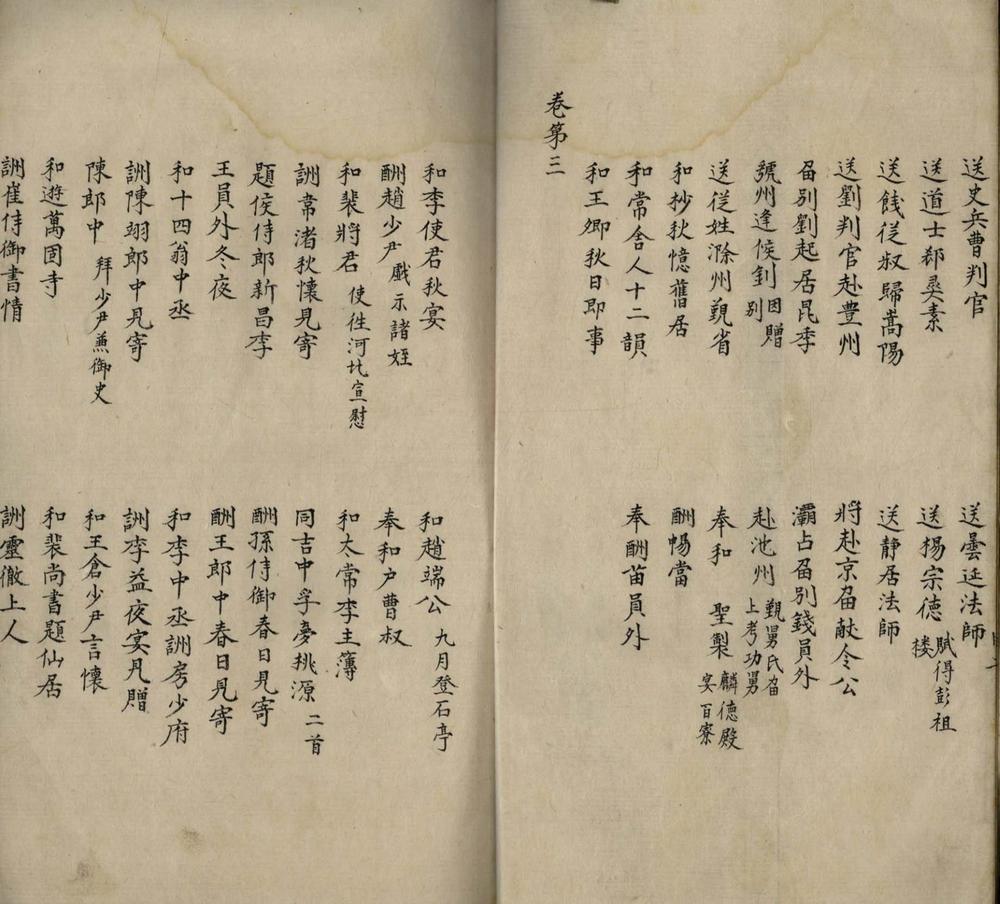 送史兵曹判官　送曇延法師
送道士郄彛素　送楊宗德 賦得彭祖楼
送餞從叔歸嵩陽　送静居法師
送劉判官赴豊州　將赴京畱献令公
畱别劉起居昆季　灞占畱别錢員外
虢州逢侯釗 因贈别　赴池州 覲舅氏畱上考功舅
送從姓滁州覲省　奉和 聖製 麟德殿宴百寮
和抄秋憶舊居　酬暢當
和常舍人十二韻　奉酬苗員外
和王卿秋日即事
卷第三
和李使君秋宴　和趙端公 九月登石亭
酬趙少尹 戲示諸姪　奉和户曹叔
和裴將君 使徃河北宣慰　和太常李主簿
詶常渚秋懷見寄　同吉中孚夢桃源 二首
題侯侍郎新昌李　酬孫侍御春日見寄
王員外冬夜　酬王郎中春日見寄
和十四翁中丞　和李中丞詶房少府
詶陳翊郎中見寄　詶李益夜宴見贈
陳郎中 拜少尹兼御史　和王倉少尹言懷
和遊萬固寺　和裴尚書題仙居
詶崔侍御書情　詶靈徹上人